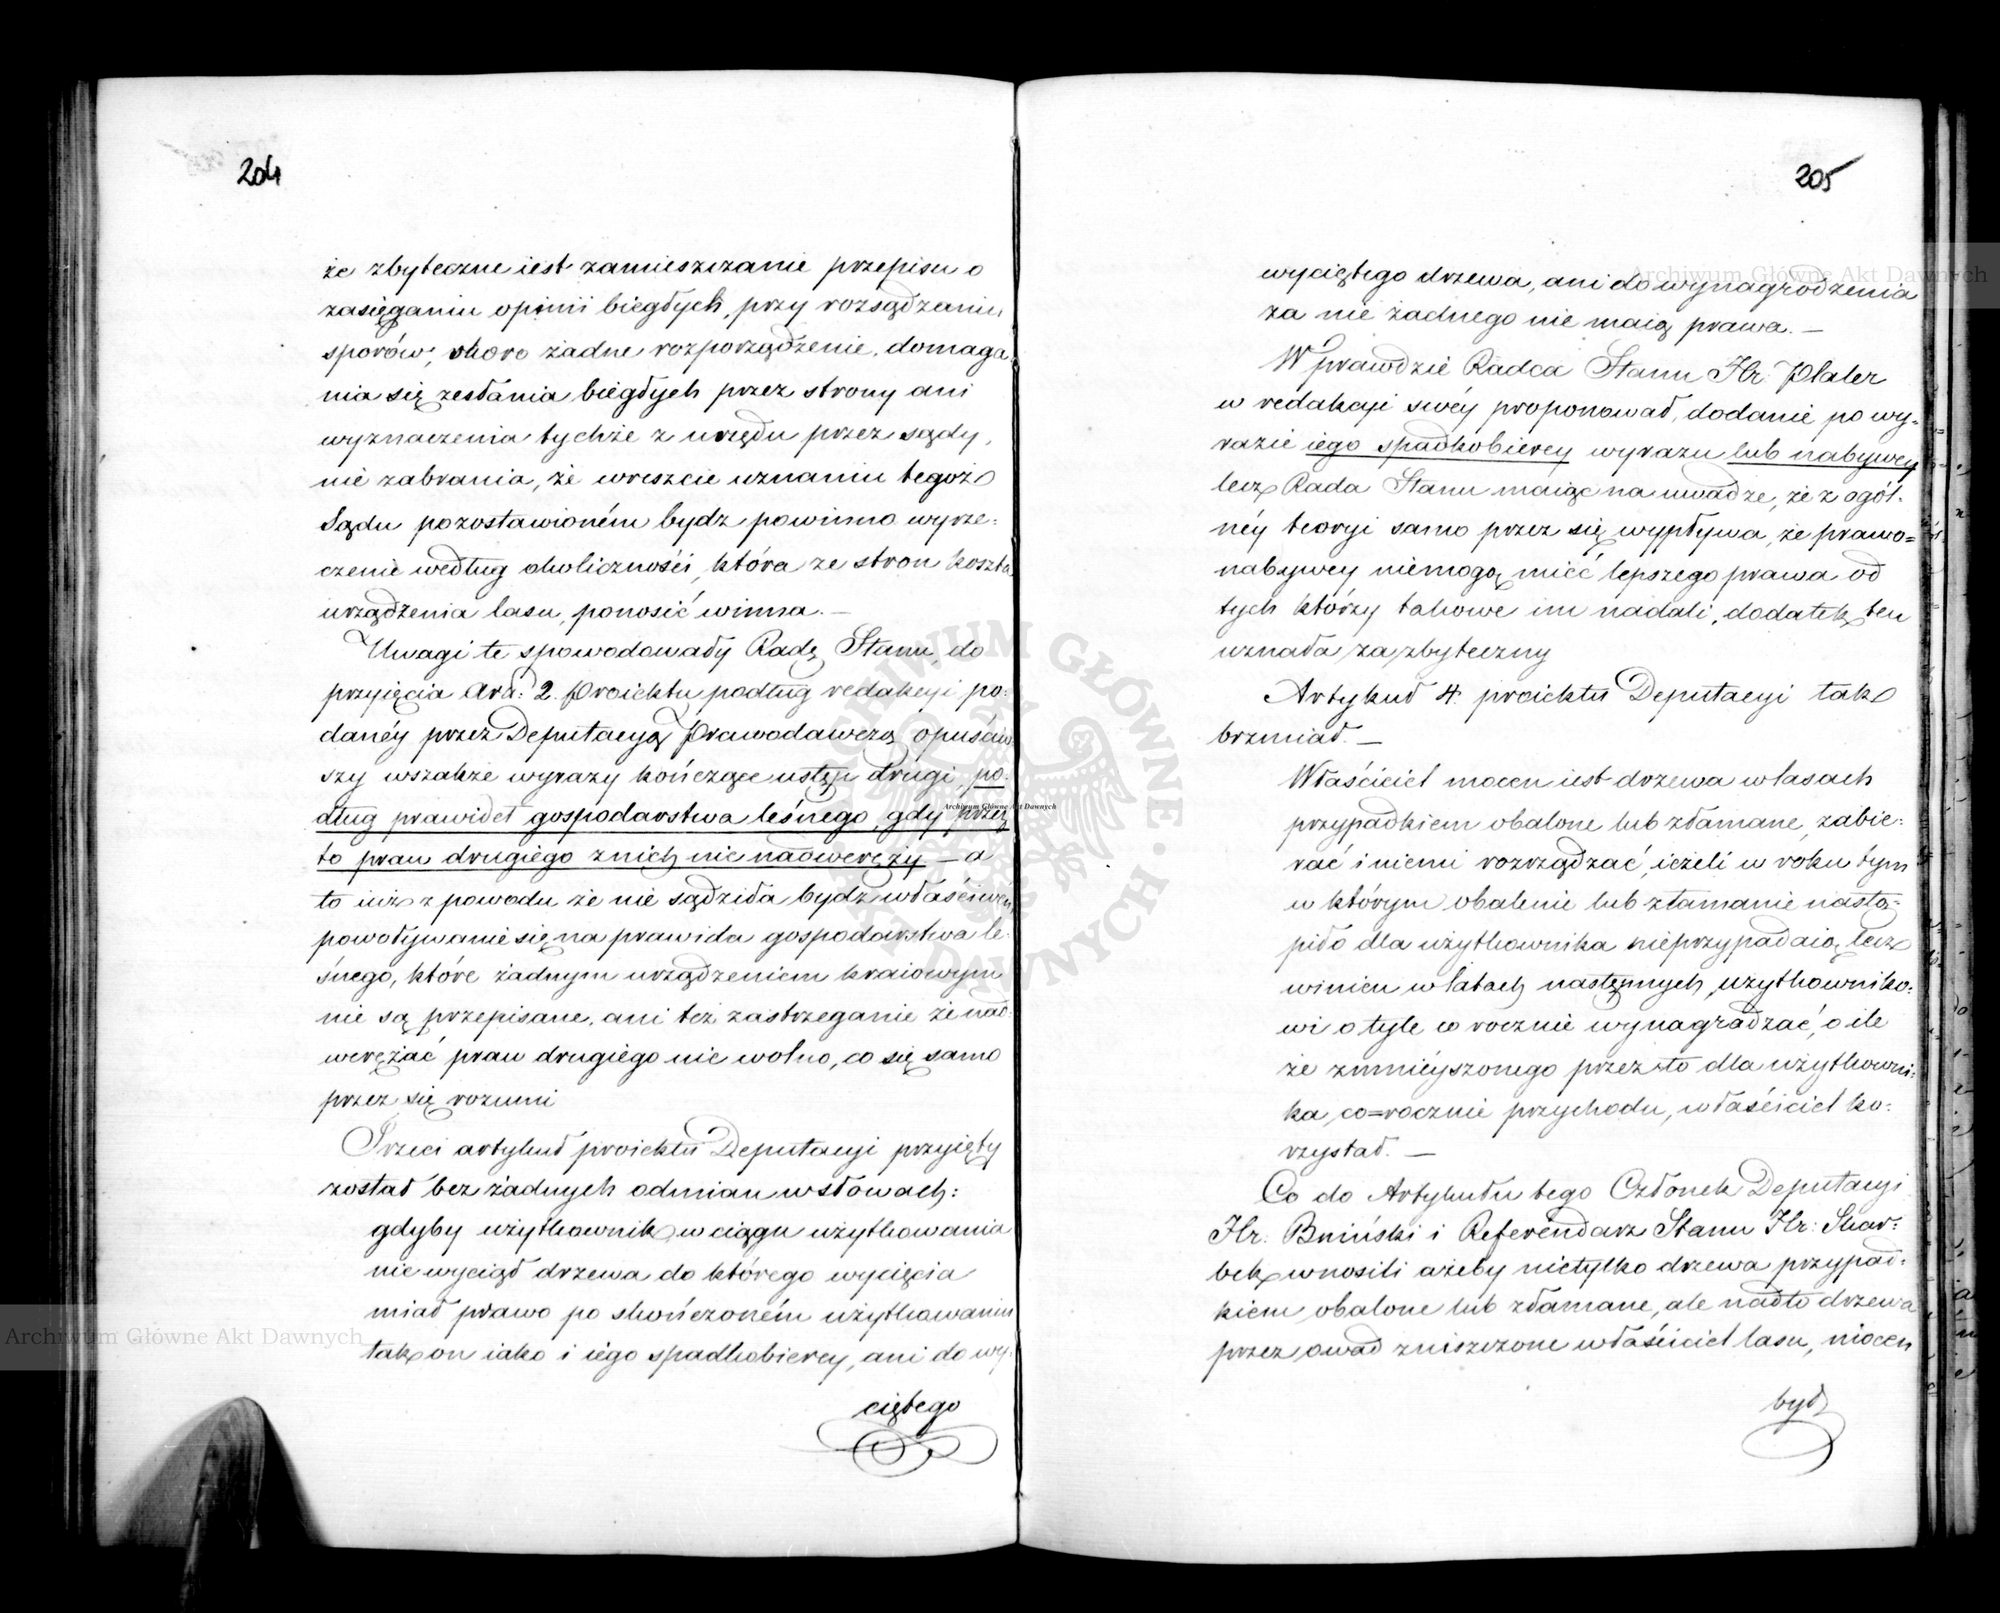 204
że zbyteczne iest zamieszczanie przepisu o
zasięganiu opinii biegłych, przy rozsądzaniu
sporów, skoro żadne rozporządzenie, domaga-
nia się zesłania biegłych przez strony ani
wyznaczenia tychże z urzędu przez sądy,
nie zabrania, że wreszcie uznaniu tegoż
Sądu pozostawioném bydz powinno wyrze=
czenie według okoliczności, która ze stron koszta
urządzenia lasu, ponosić winna. —
Uwagi te spowodowały Radę Stanu, do
przyięcia Ara: 2. Proiektu podług redakcyi po=
danéy przez Deputacyą Prawodawczą opuściw
szy wszakże wyrazy kończące ustęp drugi, po=
dług prawideł gospodarstwa leśnego, gdy przez
to praw drugiego z nich nie nadweręży — a
to iuż z powodu że nie sądziła bydz właściwém
powoływanie się na prawidła gospodarstwa le-
śnego, które żadnym urządzeniem kraiowym
nie są przepisane, ani też zastrzeganie że nad-
werężać praw drugiego nie wolno, co się samo
przez się rozumi
Trzeci artykuł proiektu Deputacyi przyięty
został bez żadnych odmian w słowach:
gdyby użytkownik w ciągu użytkowania
nie wyciął drzewa do którego wycięcia
miał prawo po skończoném użytkowaniu
tak on iako i iego spadkobiercy, ani do wy-
ciętego
205
wyciętego drzewa, ani do wynagrodzenia
za nie żadnego nie maią prawa. —
W prawdzie Radca Stanu Hr: Plater
w redakcyi swéy proponował, dodanie po wy=
razie iego spadkobiercy wyrazu lub nabywcy
lecz Rada Stanu maiąc na uwadze, że z ogól=
néy teoryi samo przez się wypływa, że prawo=
nabywcy niemogą mieć lepszego prawa od
tych którzy takowe im nadali, dodatek ten
uznała za zbyteczny
Artykuł 4. proiektu Deputacyi tak
brzmiał. —
Właściciel mocen iest drzewa w lasach
przypadkiem obalone lub złamane, zabie=
rać i niemi rozrządzać, ieżeli w roku tym
w którym obalenie lub złamanie nastą=
piło dla użytkownika nieprzypadaią, lecz
winien w latach następnych, użytkowniko=
wi o tyle co rocznie wynagradzać, o ile
że zmniéyszonego przez to dla użytkowni=
ka, co=rocznie przychodu, właściciel ko=
rzystał. —
Co do Artykułu tego Członek Deputacyi
Hr: Bniński i Referendarz Stanu Hr: Skar=
bek wnosili ażeby nietylko drzewa przypad=
kiem obalone lub złamane, ale nadto drzewa
przez owad zniszczone właściciel lasu, mocen
bydź
Archiwum Główne Akt Dawnych
Archiwum Główne Akt Dawnych
Archiwum Główne Akt Dawnych
ARCHIWUM GŁÓWNE • AKT DAWNYCH •